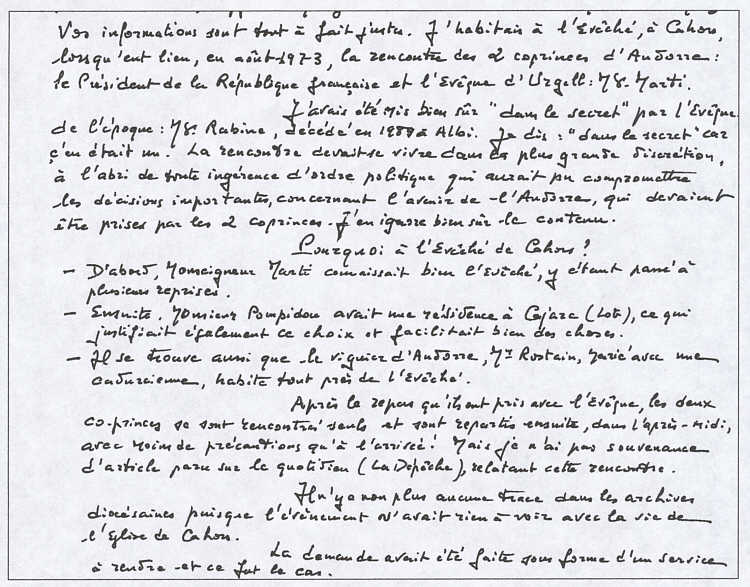 Vos informations sont tout à fait justes. J'habitais à l'Evêché, à Cahors,
lorsqu'eut lieu, en août 1973, la rencontre des 2 coprinces d'Andorre :
le Président de la République française et l'Evêque d'Urgell : Mgr. Marti.
J'avais été mis bien sûr "dans le secret" par l'Evêque
de l'époque : Mgr. Rabine, décédé en 1987 à Albi. Je dis : "dans le secret" car
ç'en était un. La rencontre devait se vivre dans la plus grande discrétion,
à l'abri de toute ingérence d'ordre politique qui aurait pu compromettre
les décisions importantes, concernant l'avenir de l'Andorre, qui devaient
être prises par les 2 coprinces. J'en ignore bien sûr le contenu.
Pourquoi à l'Evêché de Cahors ?
- D'abord, Monseigneur Marti connaissait bien l'Evêché, y étant passé à
plusieurs reprises.
- Ensuite. Monsieur Pompidou avait une résidence à Cajarc (Lot), ce qui
justifiait également ce choix et facilitait bien des choses.
- Il se trouve aussi que le viguier d'Andorre, Mr Rostain, marié avec une
cadurcienne, habite tout près de l'Evêché.
Après le repas qu'ils ont pris avec l'Evêque, les deux
co-princes se sont rencontrés seuls et sont repartis ensuite, dans l'après-midi,
avec moins de précautions qu'à l'arrivée ! Mais je n'ai pas souvenance
d'article paru sur le quotidien (La Dépêche), relatant cette rencontre.
Il n'y a non plus aucune trace dans les archives
diocésaines puisque l'évènement n'avait rien à voir avec la vie de
l'Eglise de Cahors.
La demande avait été faite sous forme d'un service
à rendre et ce fut le cas.